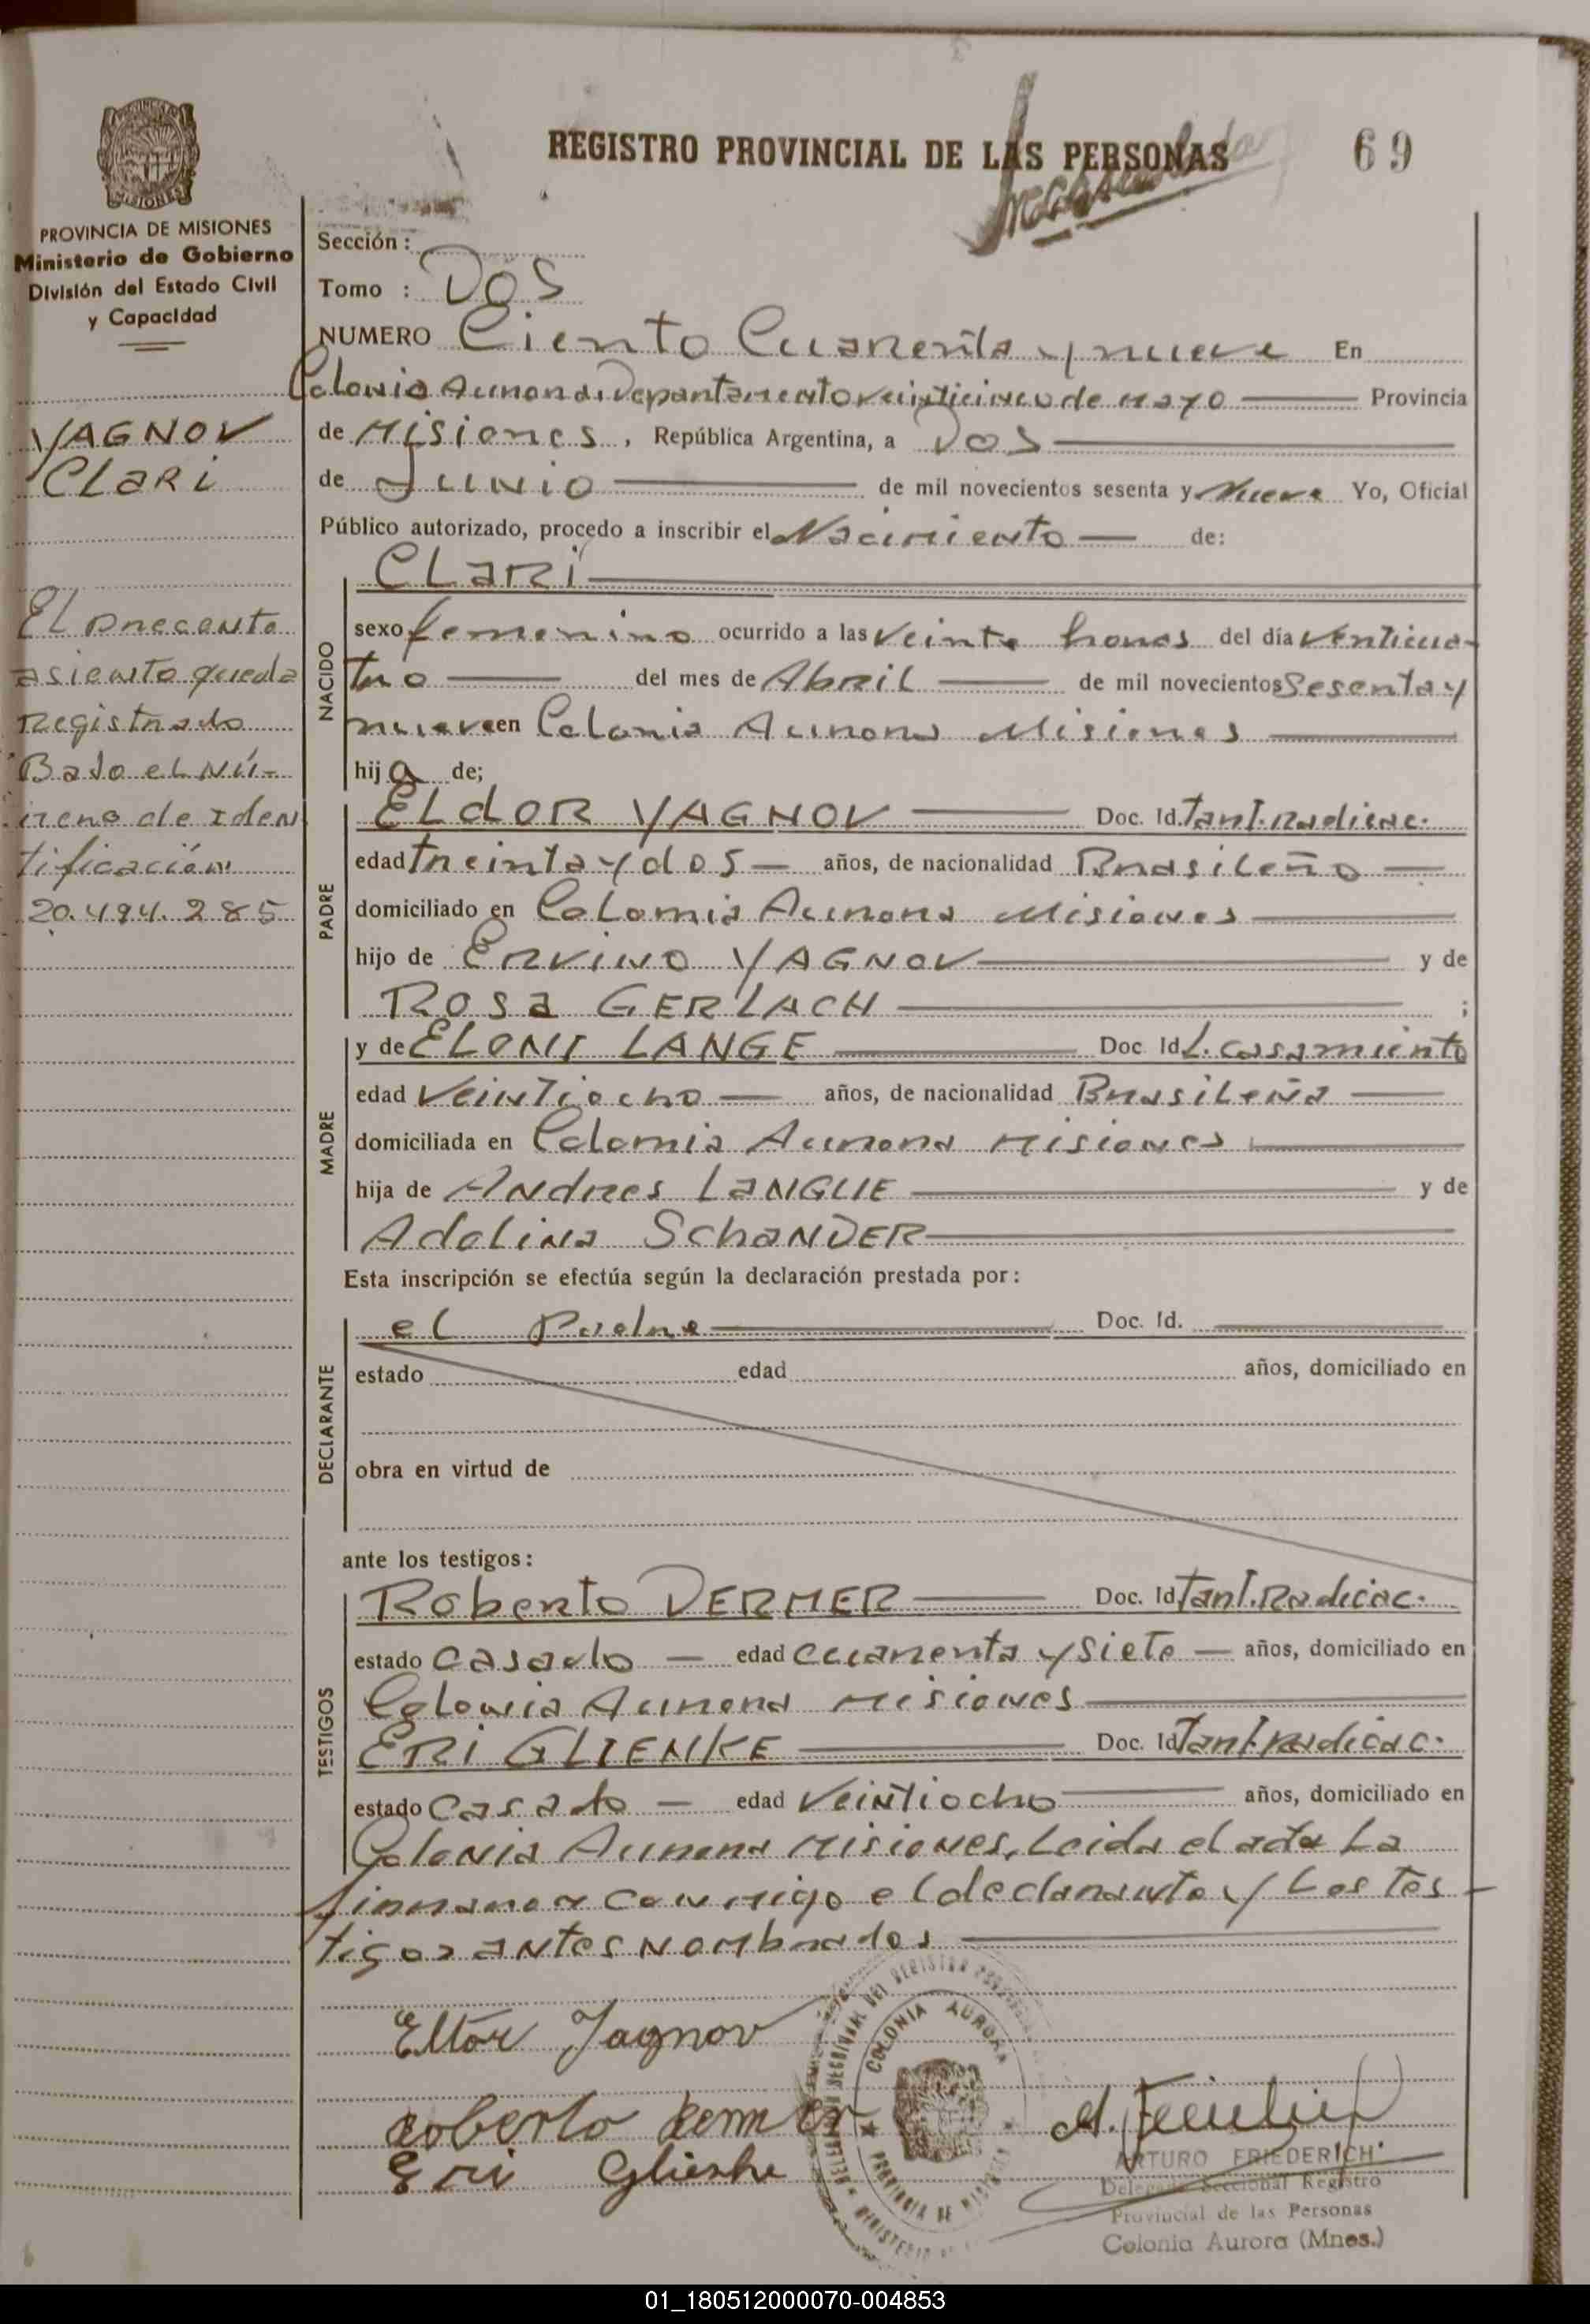 REGISTRO PROVINCIAL DE LAS PERSONAS
69
PROVINCIA DE MISIONES
Ministerio de Gobierno
División del Estado Civil
y Capacidad
YAGNOV
CLARI
EL precente
asiento queda
Registrado
Bajo el Nú-
mero de Iden
tificación
20.494.285
Sección :
Tomo : DOS
NUMERO Ciento Cuarenta y nueve En
Colonia Aurora, Departamento veinticinco de Mayo Provincia
de Misiones, República Argentina, a Dos
de Junio de mil novecientos sesenta y Nueve Yo, Oficial
Público autorizado, procedo a inscribir el Nacimiento de:
NACIDO
CLARI
sexo femenino ocurrido a las veinte horas del día venticua-
tro del mes de Abril de mil novecientos Sesenta y
nueve en Colonia Aurora Misiones
hija de;
PADRE
ELdOR YAGNOV Doc. Id. Tarj. Radicac.
edad treinta y dos años, de nacionalidad Brasileño
domiciliado en Colonia Aurora Misiones
hijo de Ervino YAGNOV y de
Rosa GERLACH ;
MADRE
y de ELONI LANGE Doc Id L. casamiento
edad Veintiocho años, de nacionalidad Brasileña
domiciliada en Colonia Aurora Misiones
hija de Andres LANGUE y de
Adelina SchaNDER
Esta inscripción se efectúa según la declaración prestada por :
DECLARANTE
el Padre Doc. Id.
estado edad años, domiciliado en
obra en virtud de
ante los testigos :
TESTIGOS
Roberto DERMER Doc. Id Tarj. Radicac.
estado Casado edad Cuarenta y Siete años, domiciliado en
Colonia Aurora Misiones
ERI GLIENKE Doc. Id Tarj. radicac.
estado Casado edad Veintiocho años, domiciliado en
Colonia Aurora Misiones, Leida el acta La
firmaron conmigo el declarante y Los tes-
tigos antes nombrados
Eltor Jagnov
COLONIA AURORA
PROVINCIA DE MISIONES
ARTURO FRIEDERICH
Delegado Seccional Registro
Provincial de las Personas
Colonia Aurora (Mnes.)
01_180512000070-004853